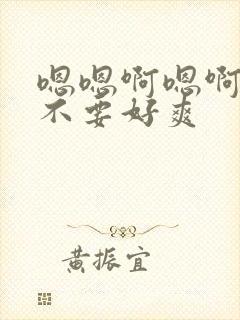 嗯嗯啊嗯啊
不要好爽
黄振宜